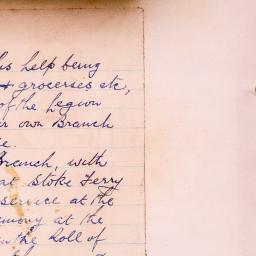 his help being
& grocerses etc,
of the Legion
own Branch
Branch, with
at Stoke Ferry
service at the
at the
in the Roll of